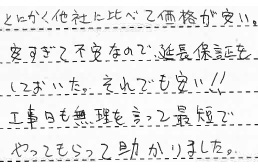 とにかく他社に比べて価格が安い。
安すぎて不安なので延長保証を
しておいた。それでも安い!!
工事日も無理を言って最短で
やってもらって助かりました。